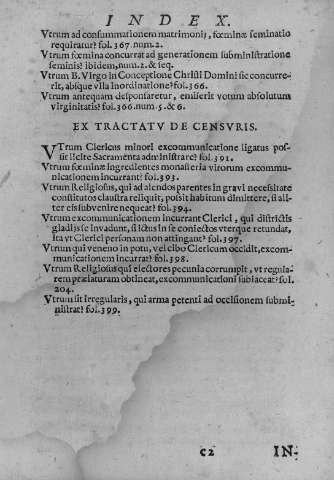 INDEX.
Vtrum ad consummationem matrimonij, fœminæ seminatio
requiratur? fol.367.num.2.
Vtrum fœmina concurrat ad generationem subministratione
seminis? ibidem, num.2.& seq.
Vtrum B. Virgo in Conceptione Christi Domini sic concurre-
rit, absque vlla inordinatione? fol.366.
Vtrum antequam desponsaretur, emiserit votum absolutum
virginitatis? fol.366.num.5.& 6.
EX TRACTATV DE CENSVRIS.
VTrum Clericus minori excommunicatione ligatus pos-
sit licite Sacramenta administrare? fol.391.
Vtrum fœminæ ingredientes monasteria virorum excommu-
nicationem incurrant? fol.393.
Vtrum Religiosus, qui ad alendos parentes in gravi necessitate
constitutos claustra reliquit, possit habitum dimittere, si ali-
ter eis subvenire nequeat? fol.394.
Vtrum excommunicationem incurrant Clerici, qui districtis
gladijs se invadunt, si ictus in se coniectos vterque retundat,
ita vt Clerici personam non attingant? fol.397.
Vtrum qui veneno in potu, vel cibo Clericum occidit, excom-
municationem incurrat? fol.398.
Vtrum Religiosus qui electores pecunia corrumpit, vt regula-
rem prælaturam obtineat, excommunicationi subiaceat? fol.
204.
Vtrum sit irregularis, qui arma petenti ad occisionem submi-
nistrat? fol.399.
C2 IN-